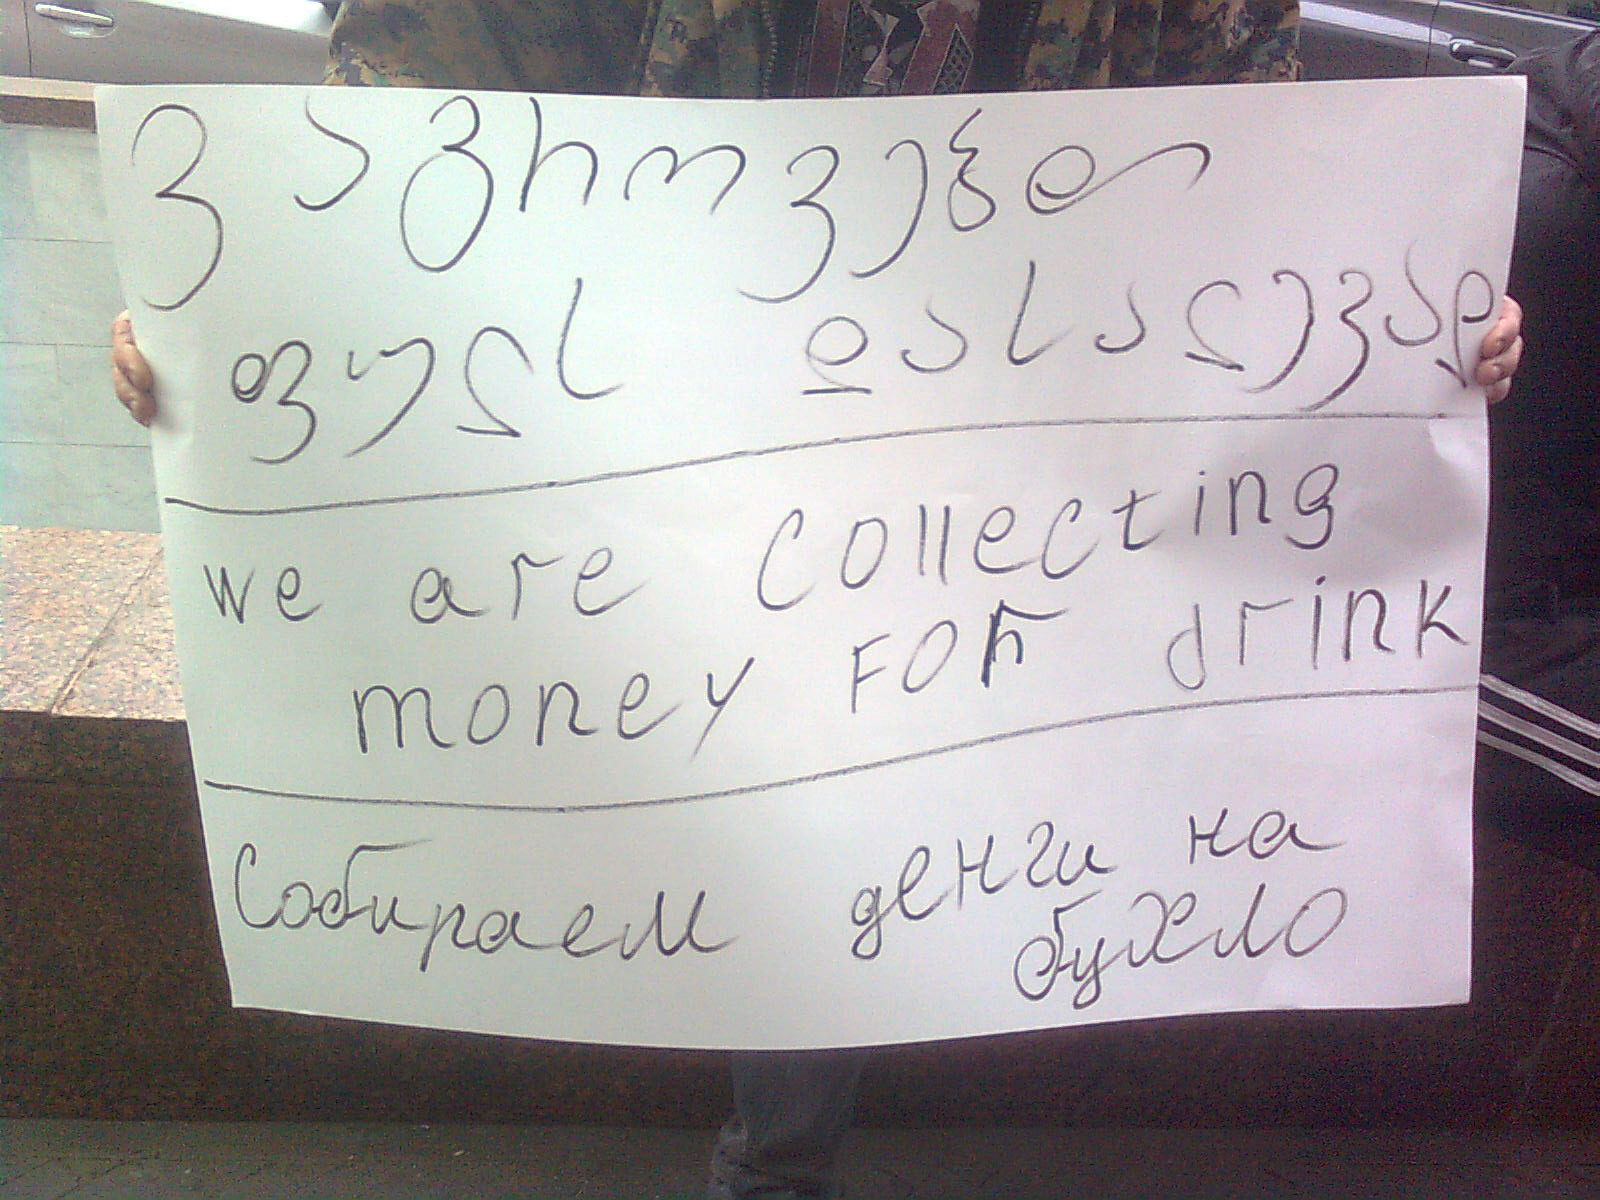 ვაგროვებთ
ფულს დასალევად
we are collecting
money FOR drink
Собираем денги на
бухло